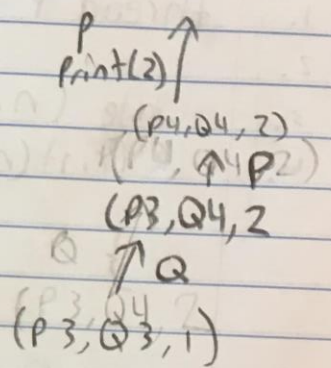 P
print(2)
(P4, Q4, 2)
P
(P3, Q4, 2
Q
(P3, Q3, 1)